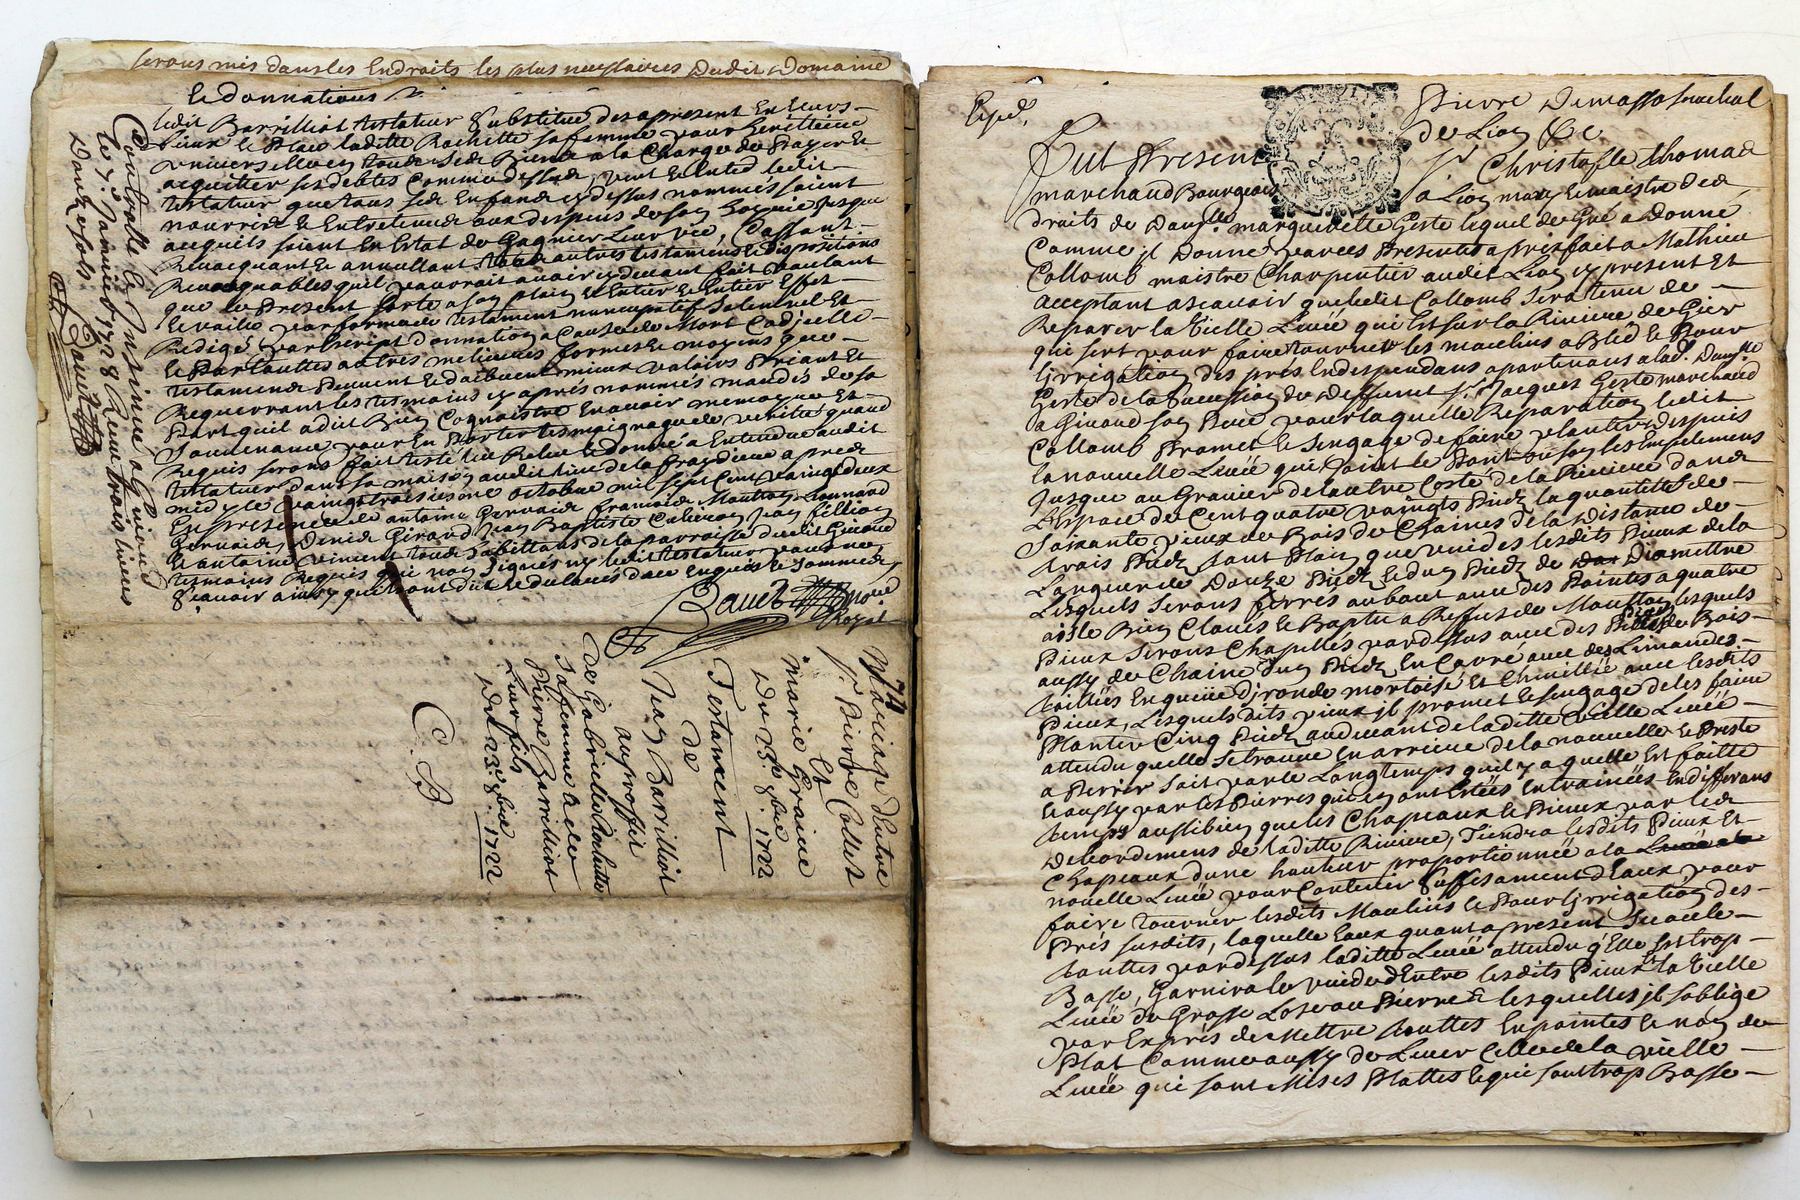 serons mis dans les Endroits les plus necessaires dudit Domaine
le donnations
ledit Barrilliot testateur Substitue des apresent En leurs
Lieux et Place laditte Rochette sa femme pour heritiere
universelle en tous Ses Biens a la Charge de Payer et
acquitter ses debtes Comme dessus, veut Entend ledit
testateur que tous ses Enfans cy dessus nommés soient
nourris et Entretenus aux despens de son hoyrie jusque
a ce quils soient En Estat de Gagnier Leur vie, Cassant
Revocquant et annullant tous autres testamens et dispositions
Revocquables quil pourroit avoir cy devant fait voulant
que le Present sorte a son plain et Entier et Entier Effet
et vaille par forme de testament nuncupatif Solemnel Et
Redigé par Escript donnation a Cause de Mort Codicille
et Par touttes autres meilieures formes et moyens que
testamens Peuvent et doibvent mieux valoirs Priant Et
Requerrant les tesmoins cy après nommés mandés de sa
Part quil a dit Bien Cognoistre En avoir memoire Et
Souvenance pour En Porter tesmoignage de verité quand
Requis seront fait
testateur dans sa maison audit lieu de la
midy le vaingt troisiesme octobre mil sept Cent vaingt deux
En presence de antoine Gervais francois
Gervais, Denis Girard Jean Baptiste
et antoine vincent tous habittans de la parroisse dudit
tesmoins Requis qui nont Signés ny ledit testateur pour ne
Sçavoir ainsy quils ont dit et declarés de ce Enquis et Sommés
noire
Royal
Controllé et Insinué a
le 7e. Janvier 1728 Receu trois livres
Douze sols.
74
Mariage D'entre
Sr. Pierre Collet
Et
Marie Graine
Du 25e. 8bre. 1722
Testament
de
Jean Barrilliot
au proffit
de Gabrielle Rochette
sa femme & de
Pierre Barrilliot
Leur fils
Du 23e. 8bre 1722
C. B
Exped.
Pierre Demasso Senechal
de Lion &c
Fut Present Sr. Christofle thomas
marchand Bourgeois a Lion mary et maistre des
droits de Damslle. margueritte Geste lequel de Gré a Donné
Comme jl Donne par ces Presentes a prix fait a Mathieu
Collomb maistre Charpentier audit Lion cy present Et
acceptant a scavoir que ledit Collomb Sera tenu de
Reparer la Vielle Levée qui Est sur la Riviere de Gier
qui sert pour faire tourner les moulins a Bled et Pour
Lirrigation des prés En dependans apartenans a lad. Damslle
Geste de la Succession du deffunt Sr. Jacques Geste marchand
a Givord son Pere pour laquelle Reparation ledit
Collomb Promet et S'engage de faire planter despuis
la nouvelle Levée qui Joint le Pont
Jusque au Gravier de lautre Costé de la Riviere dans
L'Espace de Cent quatre vaingts Pieds la quantitté de
Soixante pieux de Bois de Chaines de la Distance de
trois Pieds tant Plain que vuides lesdits Pieux de la
Longueur de Douze Pieds et dun Pieds de Diamettre
Lesquels Seront ferrés au bout avec des Pointes a quatre
aisle Bien Cloués et Baptu a Reffus de Mouton lesquels
Pieux Seront Chapellés par dessus avec des Pieces de Bois
aussy de Chaine dun Pieds En Carré avec des Limandes
taillées En queüe dironde mortoisé Et Chevillée avec lesdits
Pieux, Lesquels dits pieux jl promet et sengage de les faire
Planter Cinq Pieds au devant de laditte Vielle Levée
attendu quelle Se trouve En arriere de la nouvelle et Preste
a Perrir soit par le Longtemps quil y a quelle Est faitte
et aussy par les Pierres qui en ont Estées Entrainées En differans
temps aussi bien que les Chapeaux et Pieux par les
Debordemens de laditte Riviere, Tiendra lesdits Pieux Et
Chapeaux d'une hauteur proportionnée a la
nouvelle Levée pour Contenir Suffisament d'Eaux pour
faire tourner lesdits Moulins et Pour Lirrigation des
Prés susdits, laquelle Eaux quant a present
touttes pardessus laditte Levée attendu q'Elle Est trop
Basse, Garnira les vuides d'Entre lesdits Pieux et la Vielle
Levée de Grosse Loses ou Pierres lesquelles jl soblige
par Exprés de Mettre touttes En pointes et non de
Plat Comme aussy de Lever Celles de la vielle
Levée qui sont Mises Plattes et qui sont trop Basse